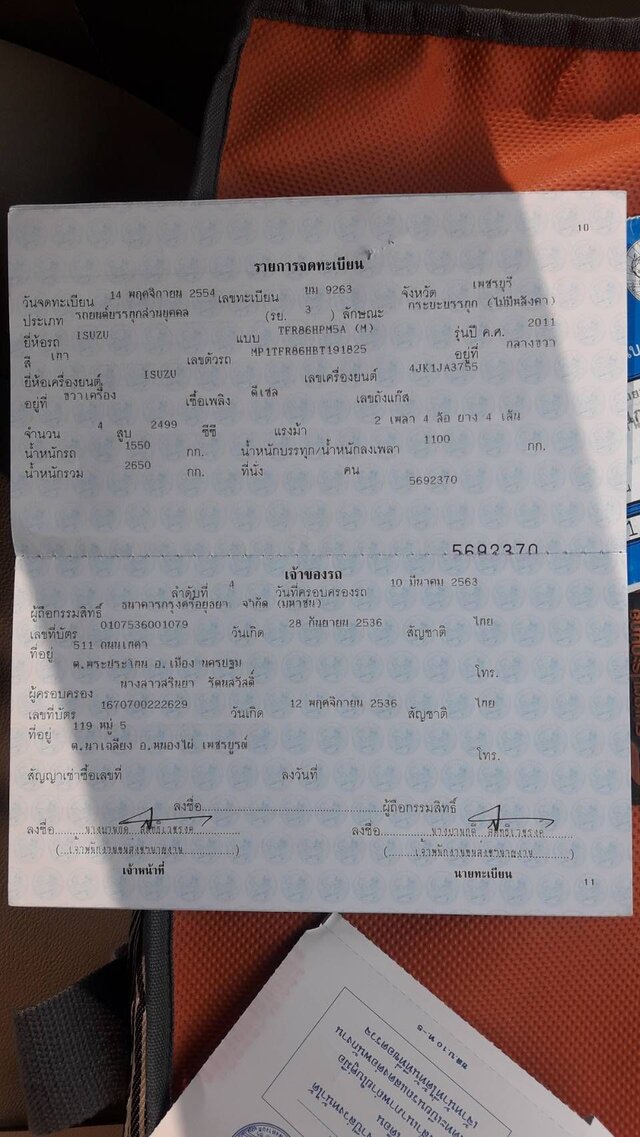 10
รายการจดทะเบียน
วันจดทะเบียน 14 พฤศจิกายน 2554 เลขทะเบียน บม 9263 จังหวัด เพชรบุรี
ประเภท รถยนต์บรรทุกส่วนบุคคล (รย. 3 ) ลักษณะ กระบะบรรทุก (ไม่มีหลังคา)
ยี่ห้อรถ ISUZU แบบ TFR86HPM5A (M) รุ่นปี ค.ศ. 2011
สี เทา เลขตัวรถ MP1TFR86HBT191825 อยู่ที่ กลางขวา
ยี่ห้อเครื่องยนต์ ISUZU เลขเครื่องยนต์ 4JK1JA3755
อยู่ที่ ขวาเครื่อง เชื้อเพลิง ดีเซล เลขถังแก๊ส
จำนวน 4 สูบ 2499 ซีซี แรงม้า 2 เพลา 4 ล้อ ยาง 4 เส้น
น้ำหนักรถ 1550 กก. น้ำหนักบรรทุก/น้ำหนักลงเพลา 1100 กก.
น้ำหนักรวม 2650 กก. ที่นั่ง คน
5692370
5692370
เจ้าของรถ
ลำดับที่ 4 วันที่ครอบครองรถ 10 มีนาคม 2563
ผู้ถือกรรมสิทธิ์ ธนาคารกรุงศรีอยุธยา จำกัด (มหาชน)
เลขที่บัตร 0107536001079 วันเกิด 28 กันยายน 2536 สัญชาติ ไทย
ที่อยู่ 511 ถนนเทศา
ต.พระประโทน อ.เมือง นครปฐม โทร.
ผู้ครอบครอง นางสาวสรินยา รัตนสวัสดิ์
เลขที่บัตร 1670700222629 วันเกิด 12 พฤศจิกายน 2536 สัญชาติ ไทย
ที่อยู่ 119 หมู่ 5
ต.นาเฉลียง อ.หนองไผ่ เพชรบูรณ์ โทร.
สัญญาเช่าซื้อเลขที่ ลงวันที่
ลงชื่อ ผู้ถือกรรมสิทธิ์
ลงชื่อ ลงชื่อ
(เจ้าพนักงานขนส่งชำนาญงาน) (เจ้าพนักงานขนส่งชำนาญงาน)
เจ้าหน้าที่ นายทะเบียน
11